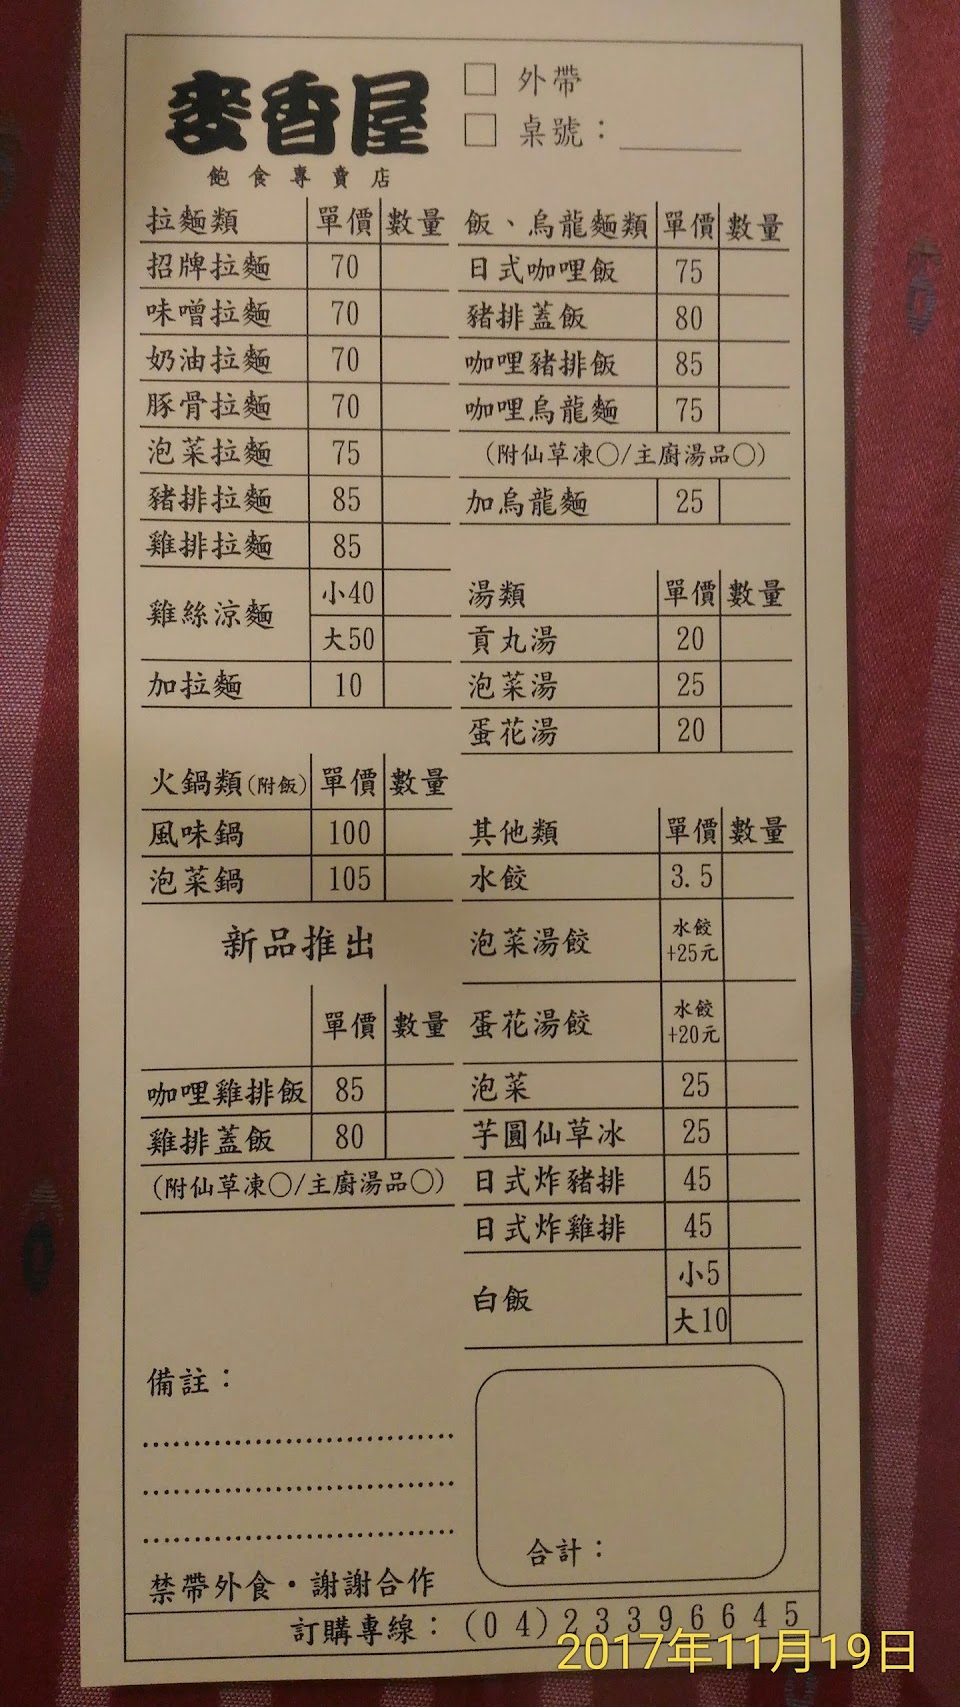 麥香屋
飽食專賣店
□ 外帶
□ 桌號：
拉麵類 單價 數量
招牌拉麵 70
味噌拉麵 70
奶油拉麵 70
豚骨拉麵 70
泡菜拉麵 75
豬排拉麵 85
雞排拉麵 85
雞絲涼麵 小40
大50
加拉麵 10
火鍋類(附飯) 單價 數量
風味鍋 100
泡菜鍋 105
新品推出
單價 數量
咖哩雞排飯 85
雞排蓋飯 80
(附仙草凍○/主廚湯品○)
飯、烏龍麵類 單價 數量
日式咖哩飯 75
豬排蓋飯 80
咖哩豬排飯 85
咖哩烏龍麵 75
(附仙草凍○/主廚湯品○)
加烏龍麵 25
湯類 單價 數量
貢丸湯 20
泡菜湯 25
蛋花湯 20
其他類 單價 數量
水餃 3.5
泡菜湯餃 水餃
+25元
蛋花湯餃 水餃
+20元
泡菜 25
芋圓仙草冰 25
日式炸豬排 45
日式炸雞排 45
白飯 小5
大10
備註：
合計：
禁帶外食·謝謝合作
訂購專線：(04)23396645
2017年11月19日